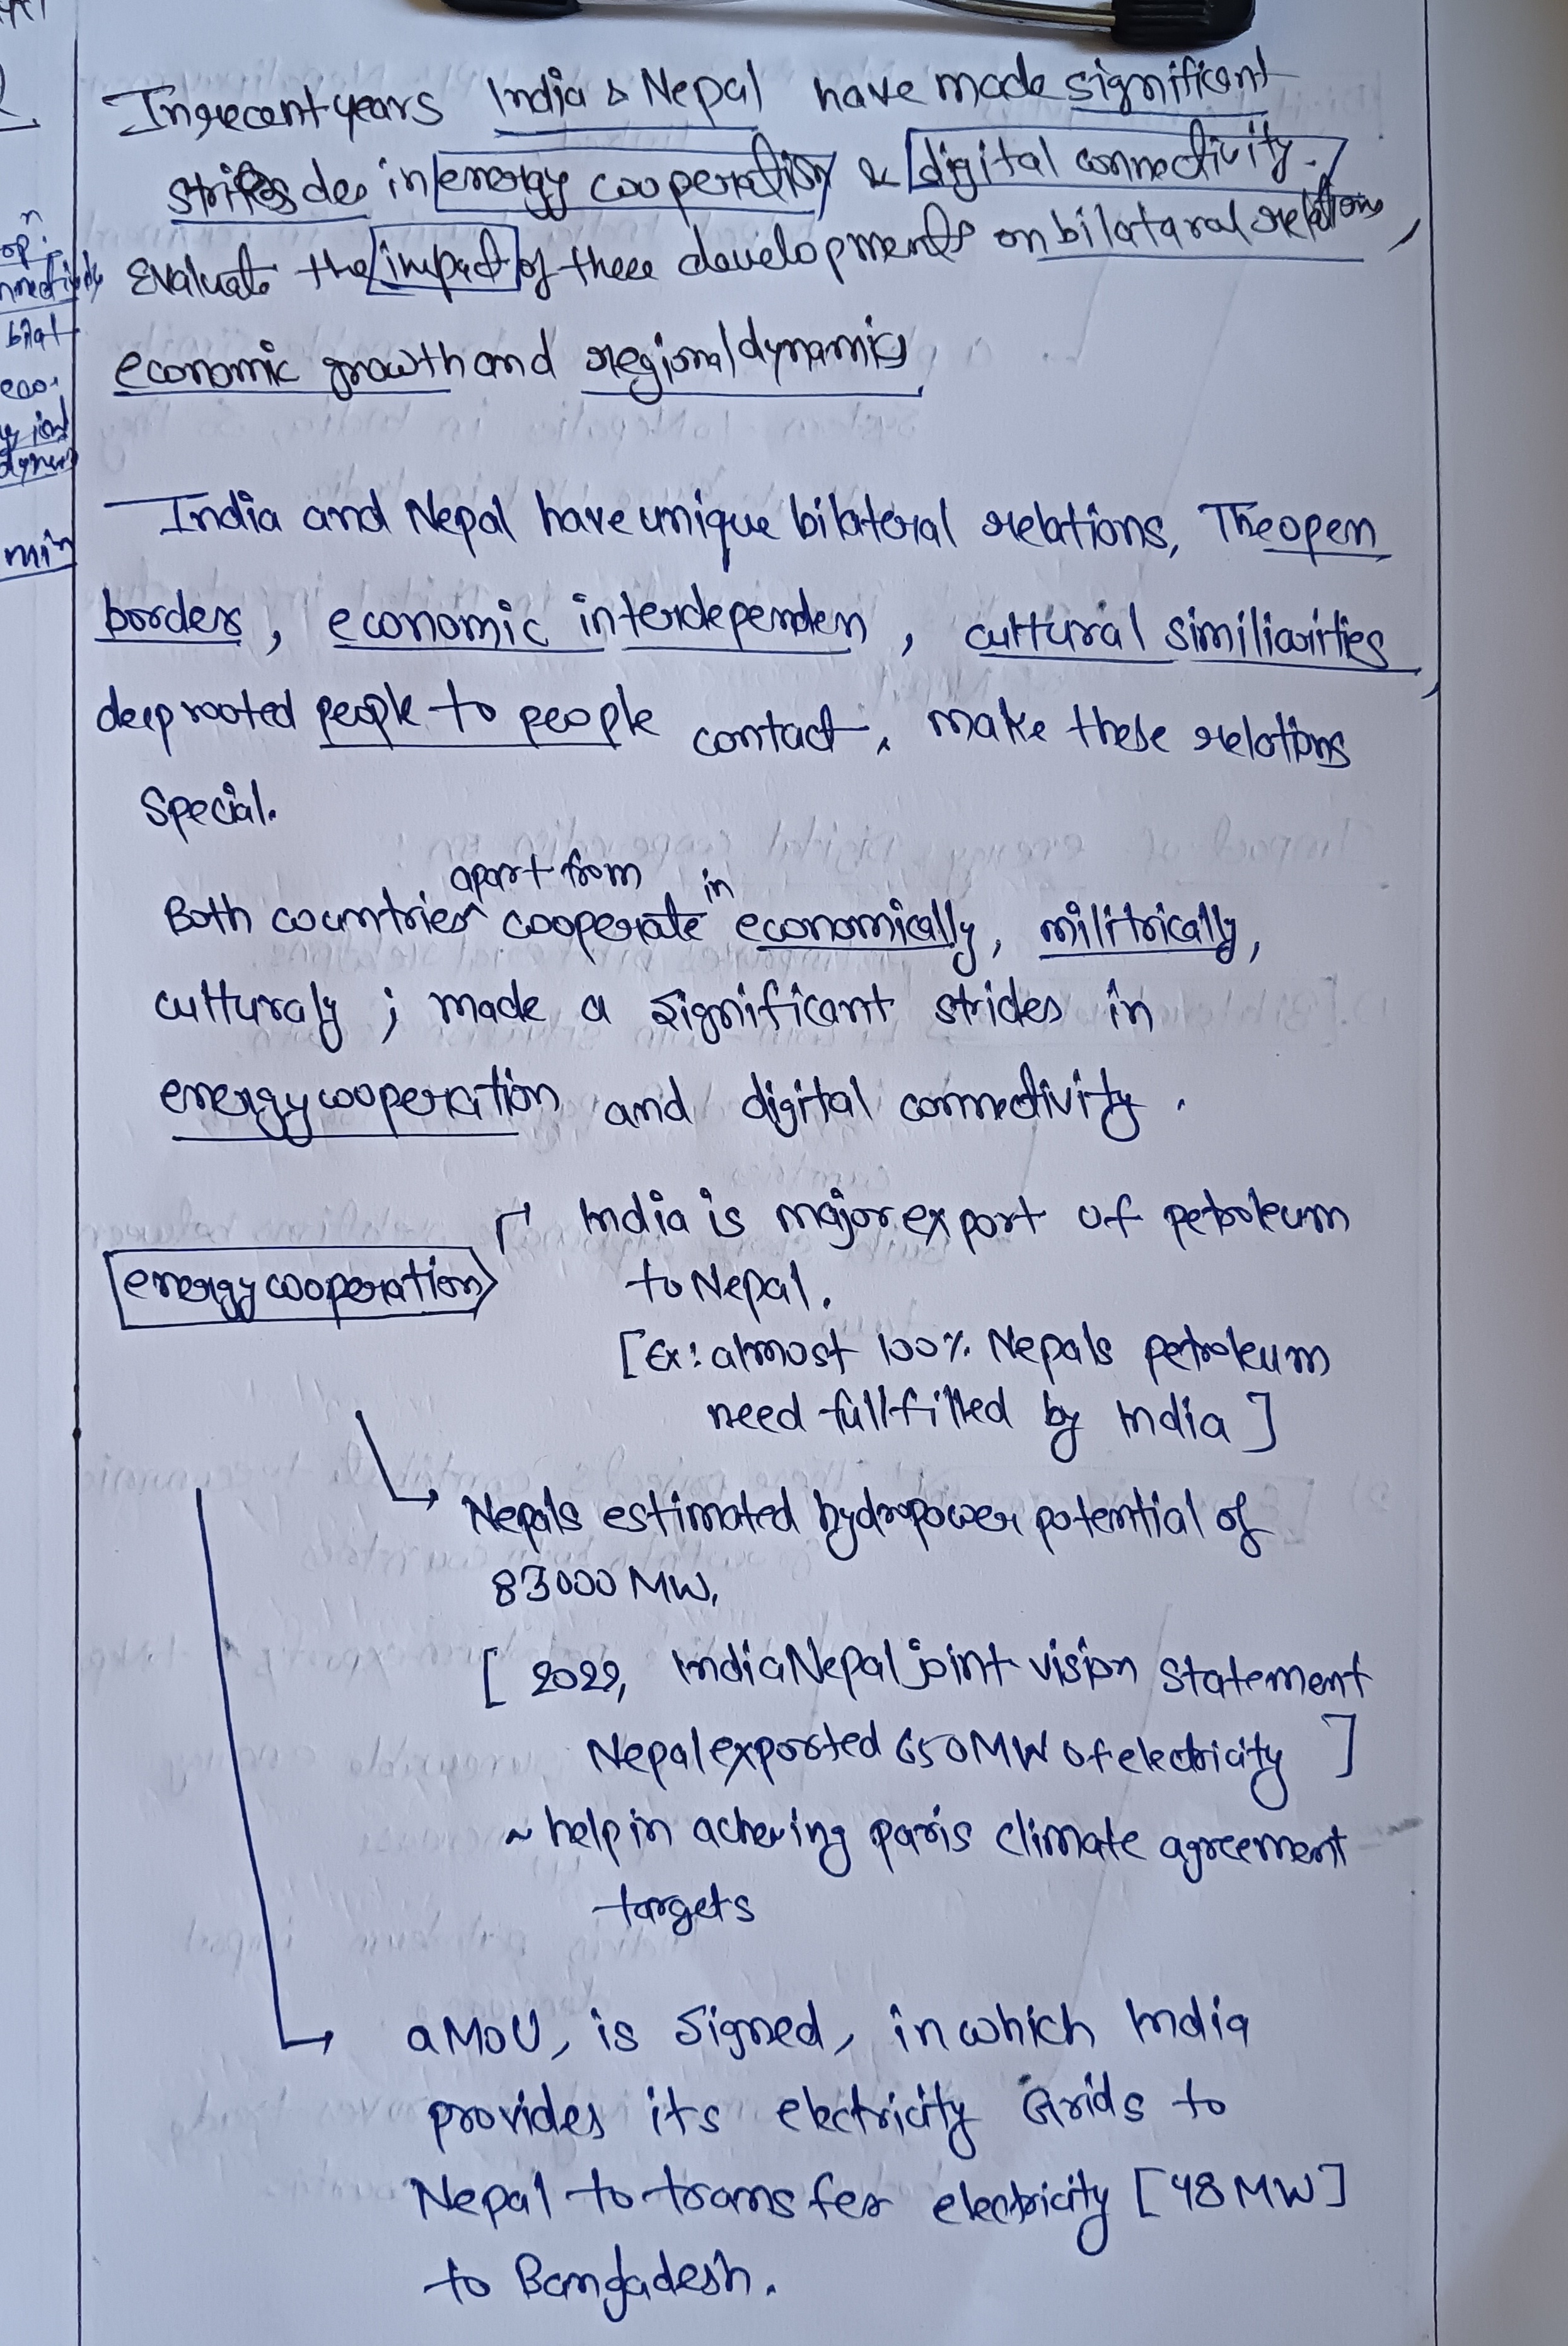 In recent years India & Nepal have made significant
strides in energy cooperation & digital connectivity.
Evaluate the impact of these developments on bilataral relations,
economic growth and regional dynamics
India and Nepal have unique bilateral relations, The open
borders, economic interdependen, cultural similiarities,
deep rooted people to people contact, make these relations
special.
apart from in
Both countries cooperate economically, militrically,
culturaly ; made a significant strides in
energy cooperation and digital connectivity.
India is major export of petroleum
energy cooperation
to Nepal.
[Ex: almost 100% Nepals petroleum
need fullfilled by India]
Nepals estimated hydropower potential of
83000 MW,
[ 2022, India Nepal joint vision statement
Nepal exported 650MW of electricity ]
~ help in acheving paris climate agreement
targets
a MoU, is signed, in which India
provides its electricity Grids to
Nepal to transfer electricity [48MW]
to Bangadesh.
min